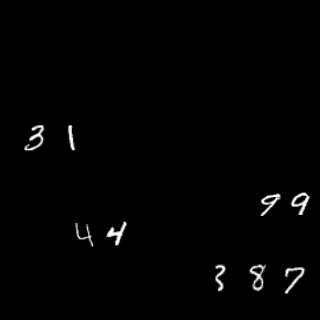 31
99
44
387